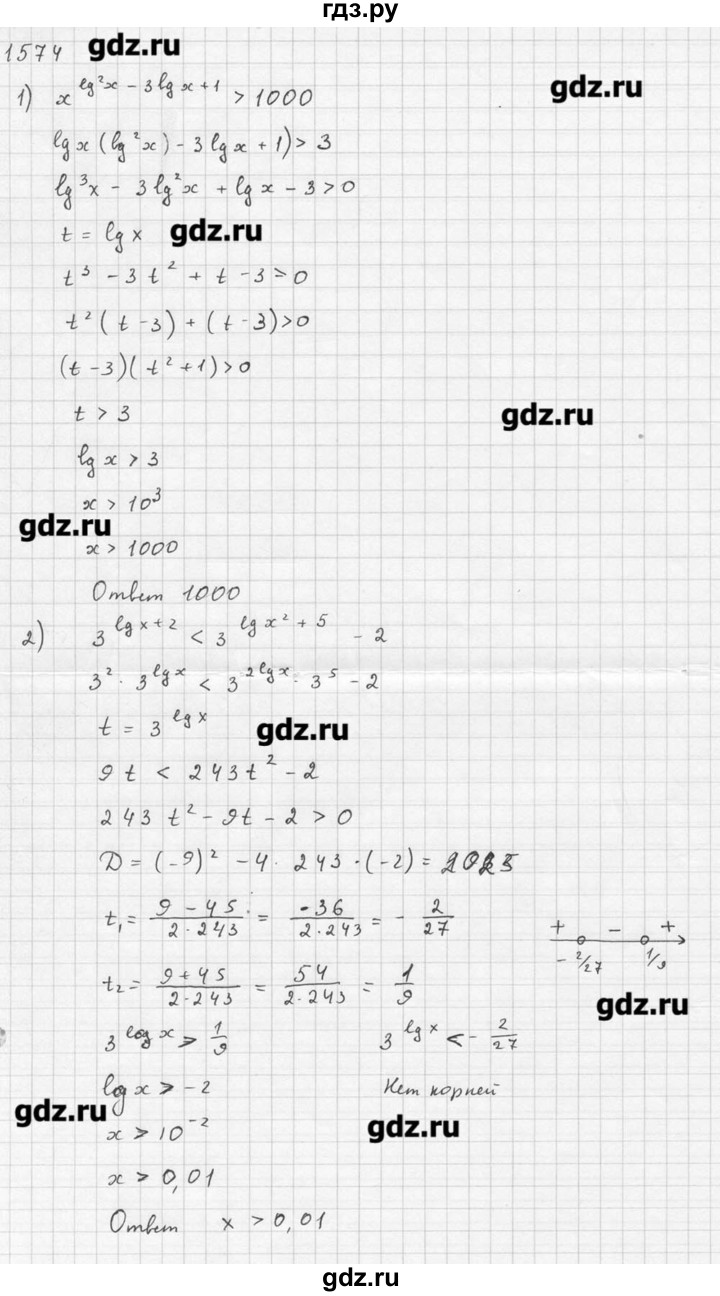 гдз.ру
1574 gdz.ru
1) x^(lg²x − 3lg x + 1) > 1000 gdz.ru
lg x (lg²x) − 3 lg x + 1) > 3
lg³x − 3 lg²x + lg x − 3 > 0
t = lg x gdz.ru
t³ − 3t² + t − 3 > 0
t²(t − 3) + (t − 3) > 0
(t − 3)(t² + 1) > 0
t > 3 gdz.ru
lg x > 3
x > 10³
gdz.ru
x > 1000
Ответ 1000
2) 3^(lg x + 2) < 3^(lg x² + 5) − 2
3² · 3^(lg x) < 3^(2 lg x) · 3⁵ − 2
t = 3^(lg x) gdz.ru
9t < 243t² − 2
243 t² − 9t − 2 > 0
D = (−9)² − 4 · 243 · (−2) = 2025
t₁ = (9 − 45)/(2·243) = −36/(2·243) = − 2/27
+ − +
− 2/27 1/9
t₂ = (9 + 45)/(2·243) = 54/(2·243) = 1/9
gdz.ru
3^(log x) > 1/9 3^(lg x) < − 2/27
log x > −2 Нет корней
gdz.ru gdz.ru
x > 10⁻²
x > 0,01
Ответ x > 0,01
gdz.ru